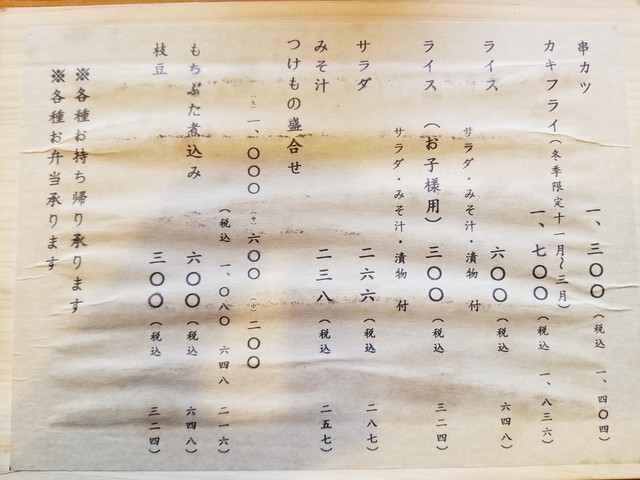 串カツ 一、三〇〇(税込 一、四〇四)
カキフライ(冬季限定十一月〜三月) 一、七〇〇(税込 一、八三六)
ライス 六〇〇(税込 六四八)
サラダ・みそ汁・漬物 付
ライス(お子様用) 三〇〇(税込 三二四)
サラダ・みそ汁・漬物 付
サラダ 二六六(税込 二八七)
みそ汁 二三八(税込 二五七)
つけもの盛合せ
(大)一、〇〇〇 (中)六〇〇 (小)二〇〇
(税込 一、〇八〇 六四八 二一六)
もちぶた煮込み 六〇〇(税込 六四八)
枝豆 三〇〇(税込 三二四)
※各種お持ち帰り承ります
※各種お弁当承ります